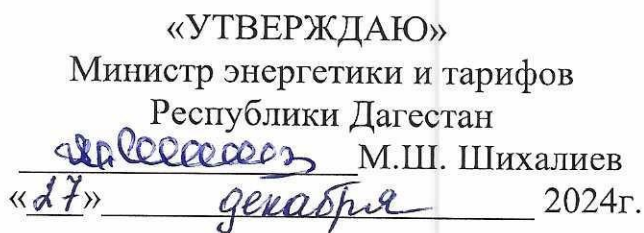 «УТВЕРЖДАЮ»
Министр энергетики и тарифов
Республики Дагестан
М.Ш. Шихалиев
«27» декабря 2024г.